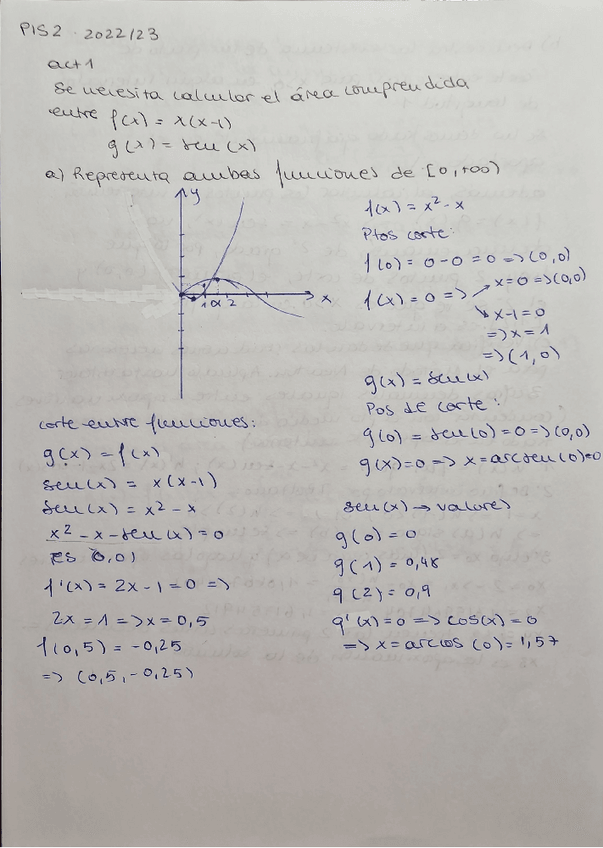 PIS2 · 2022/23
act 1
Se necesita calcular el área comprendida
entre f(x) = x(x-1)
g(x) = sen(x)
a) Representa ambas funciones de [0,+∞)
y
x
1 α 2
f(x) = x² - x
Ptos corte:
f(0) = 0 - 0 = 0 => (0,0)
f(x) = 0 => x=0 => (0,0)
x-1=0
=> x=1
=> (1,0)
g(x) = sen(x)
Pos de corte:
g(0) = sen(0) = 0 => (0,0)
g(x)=0 => x=arcsen(0)=0
corte entre funciones:
g(x) = f(x)
sen(x) = x(x-1)
sen(x) = x² - x
x² - x - sen(x) = 0
Es (0,0)
f'(x) = 2x - 1 = 0 =>
2x = 1 => x = 0,5
f(0,5) = -0,25
=> (0,5, -0,25)
sen(x) → valores
g(0) = 0
g(1) = 0,48
g(2) = 0,9
g'(x)=0 => cos(x) = 0
=> x = arccos(0) = 1,57